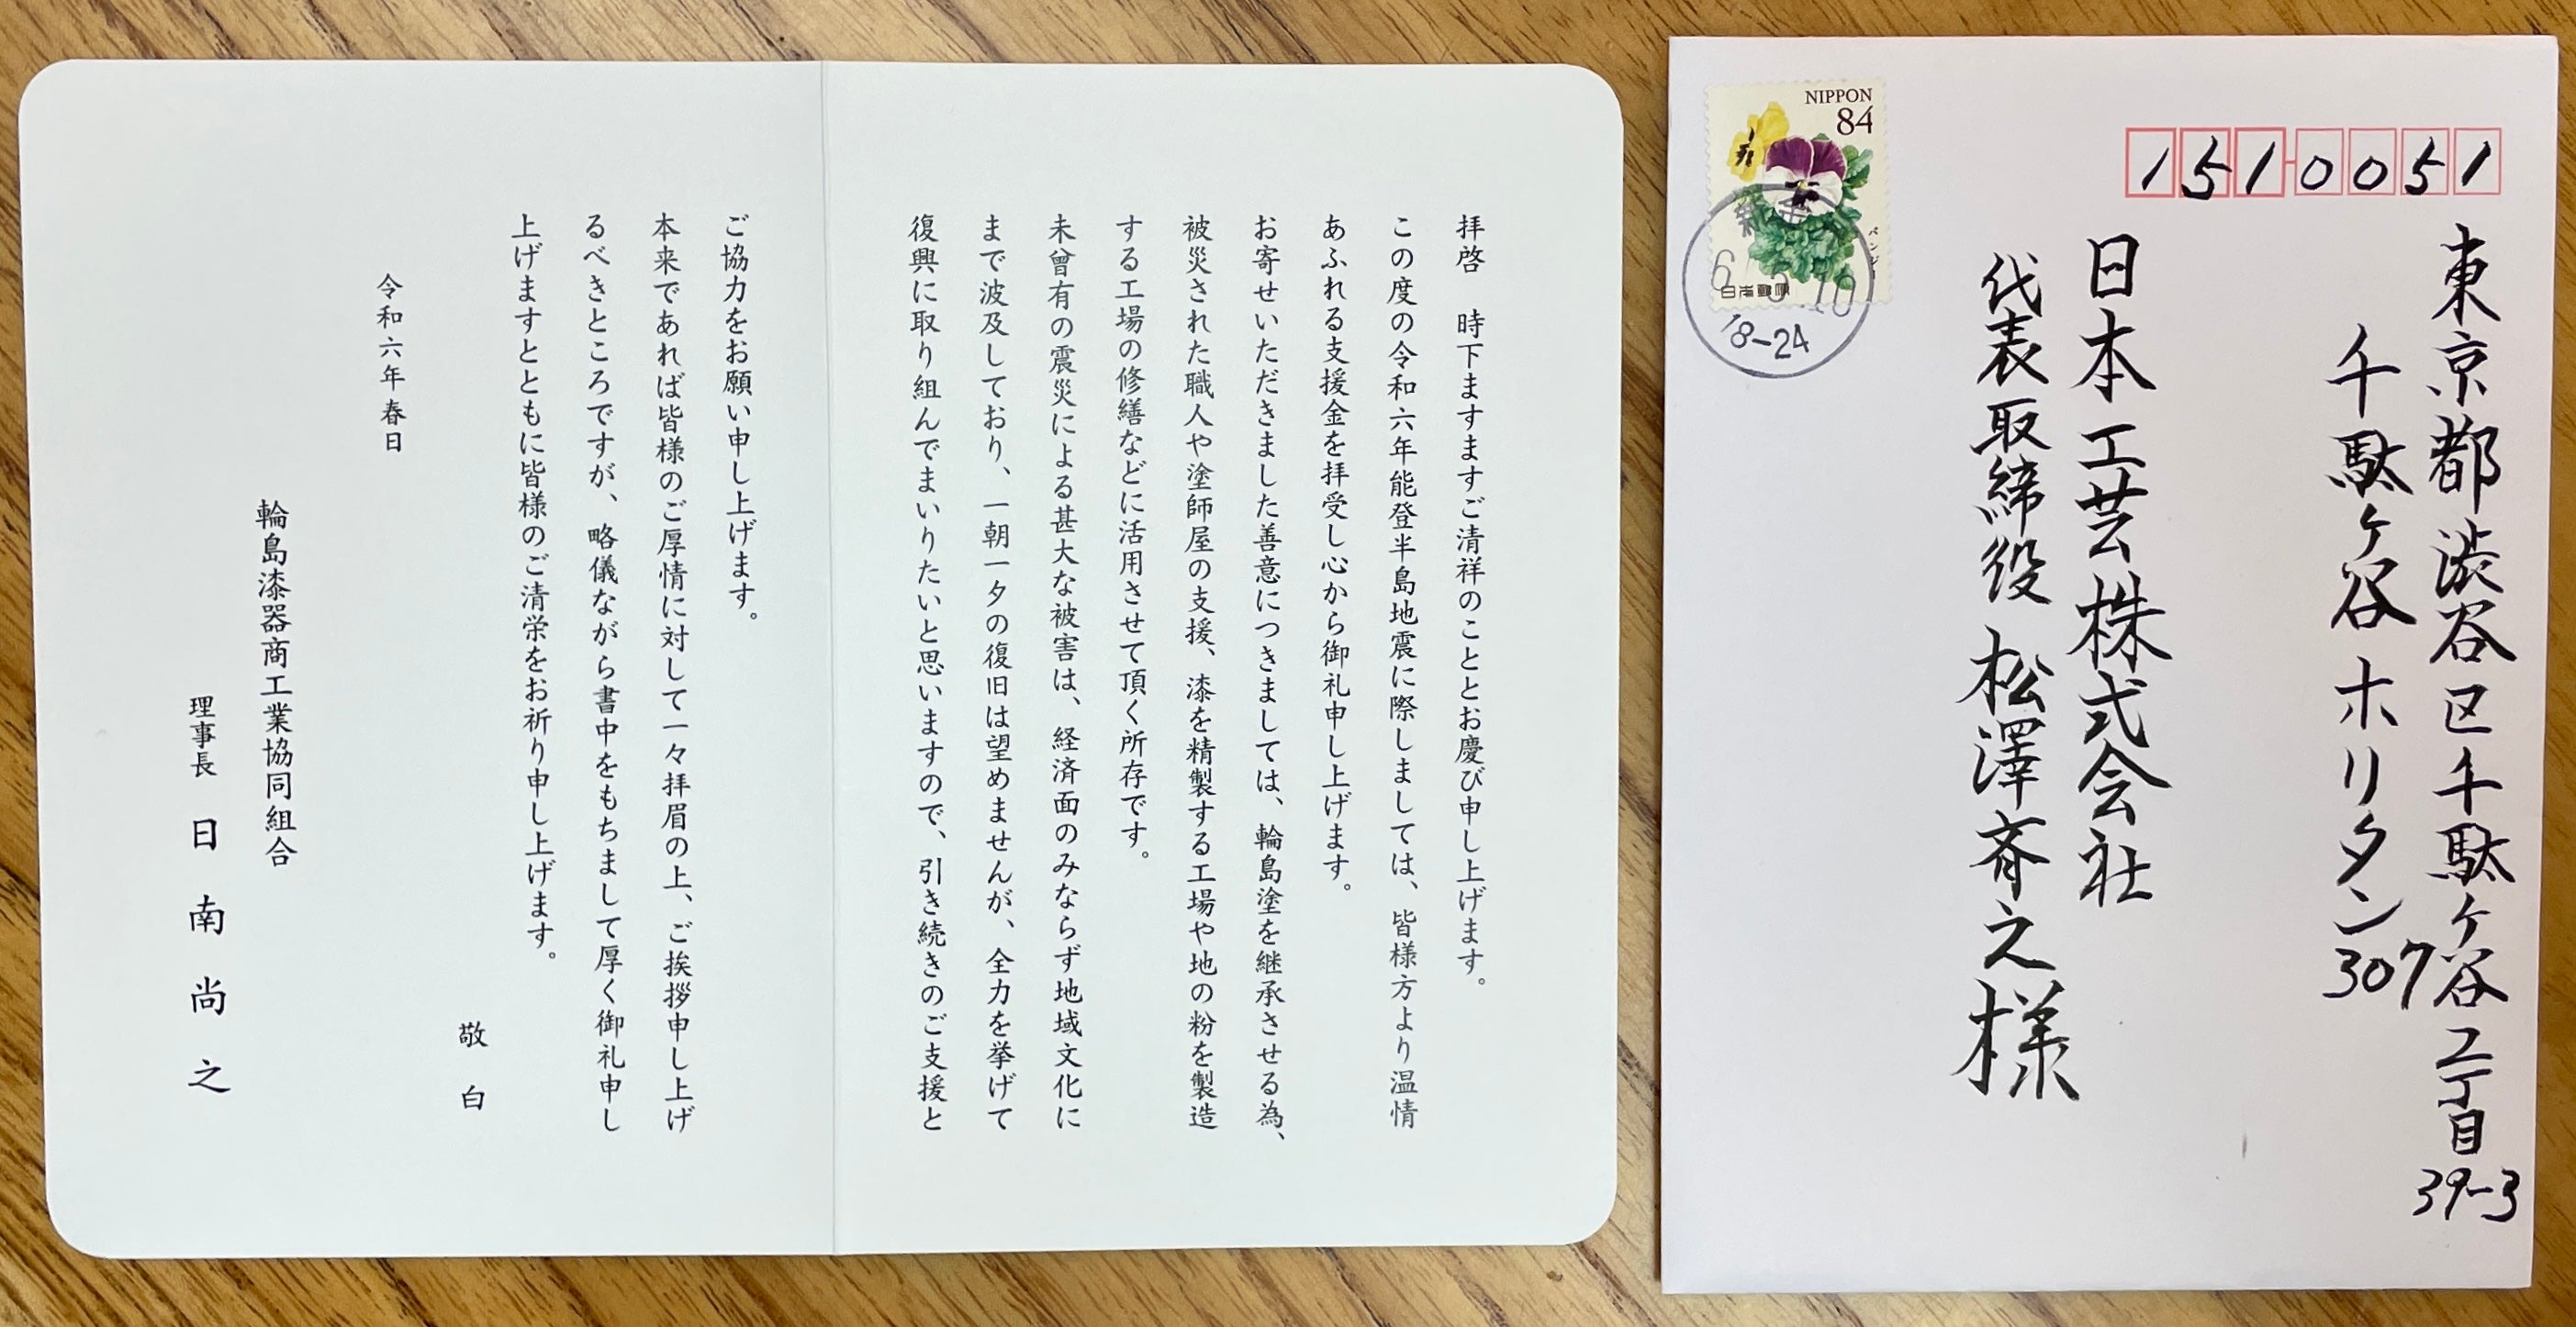 拝啓　時下ますますご清祥のこととお慶び申し上げます。
この度の令和六年能登半島地震に際しましては、皆様方より温情
あふれる支援金を拝受し心から御礼申し上げます。
お寄せいただきました善意につきましては、輪島塗を継承させる為、
被災された職人や塗師屋の支援、漆を精製する工場や地の粉を製造
する工場の修繕などに活用させて頂く所存です。
未曾有の震災による甚大な被害は、経済面のみならず地域文化に
まで波及しており、一朝一夕の復旧は望めませんが、全力を挙げて
復興に取り組んでまいりたいと思いますので、引き続きのご支援と
ご協力をお願い申し上げます。
本来であれば皆様のご厚情に対して一々拝眉の上、ご挨拶申し上げ
るべきところですが、略儀ながら書中をもちまして厚く御礼申し
上げますとともに皆様のご清栄をお祈り申し上げます。
敬白
令和六年春日
輪島漆器商工業協同組合
理事長　日南尚之
NIPPON
84
パンジー
日本郵便
18-24
151-0051
東京都渋谷区千駄ヶ谷二丁目39-3
千駄ヶ谷ホリタン307
日本工芸株式会社
代表取締役 松澤斉之様